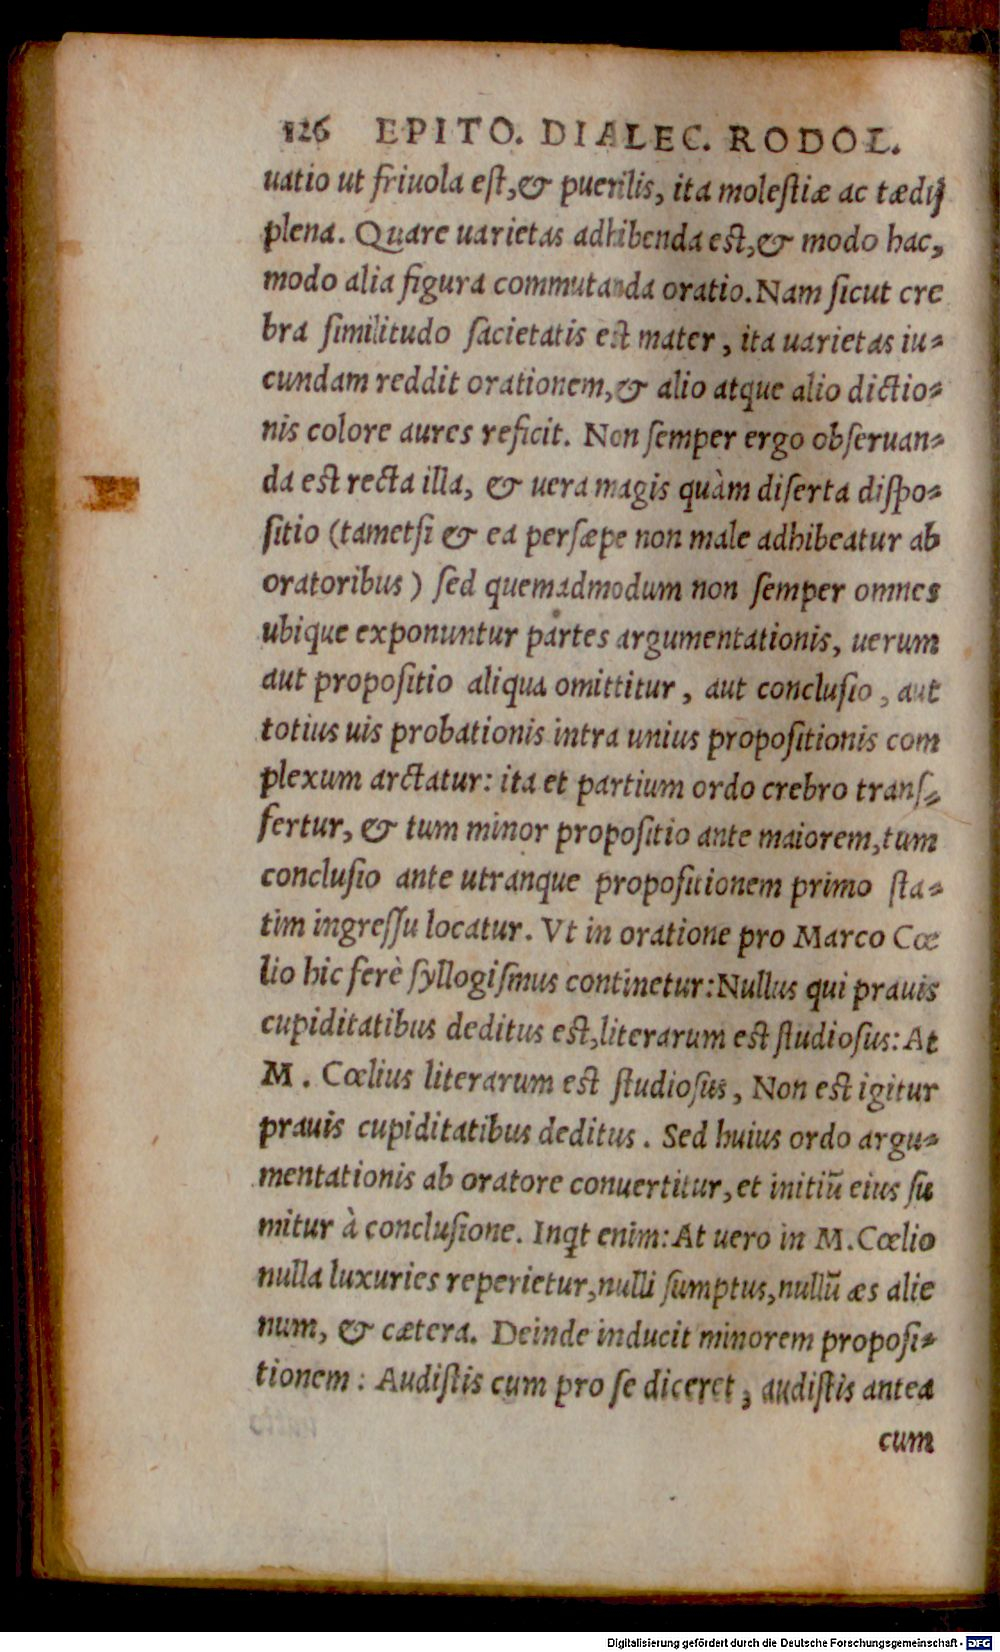 126 EPITO. DIALEC. RODOL.
uatio ut friuola eſt,& puerilis, ita moleſtiæ ac tædij
plena. Quare uarietas adhibenda eſt,& modo hac,
modo alia figura commutanda oratio. Nam ſicut cre
bra ſimilitudo ſacietatis eſt mater, ita uarietas iu⸗
cundam reddit orationem,& alio atque alio dictio⸗
nis colore aures reficit. Non ſemper ergo obſeruan⸗
da eſt recta illa, & uera magis quàm diſerta diſpo⸗
ſitio (tametſi & ea perſæpe non male adhibeatur ab
oratoribus) ſed quemadmodum non ſemper omnes
ubique exponuntur partes argumentationis, uerum
aut propoſitio aliqua omittitur, aut concluſio, aut
totius uis probationis intra unius propoſitionis com
plexum arctatur: ita et partium ordo crebro tranſ⸗
fertur, & tum minor propoſitio ante maiorem,tum
concluſio ante utranque propoſitionem primo ſta⸗
tim ingreſſu locatur. Vt in oratione pro Marco Cœ
lio hic ferè ſyllogiſmus continetur: Nullus qui prauis
cupiditatibus deditus eſt,literarum eſt ſtudioſus: At
M. Cœlius literarum eſt ſtudioſus, Non eſt igitur
prauis cupiditatibus deditus. Sed huius ordo argu⸗
mentationis ab oratore conuertitur, et initiũ eius ſu
mitur à concluſione. Inq̃t enim: At uero in M. Cœlio
nulla luxuries reperietur,nulli ſumptus,nullũ æs alie
num, & cætera. Deinde inducit minorem propoſi⸗
tionem: Audiſtis cum pro ſe diceret, audiſtis antea
cum
Digitalisierung gefördert durch die Deutsche Forschungsgemeinschaft - DFG